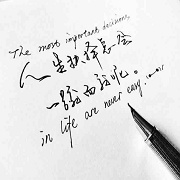 The most important decisions
人生抉择怎会
一
in life are never easy